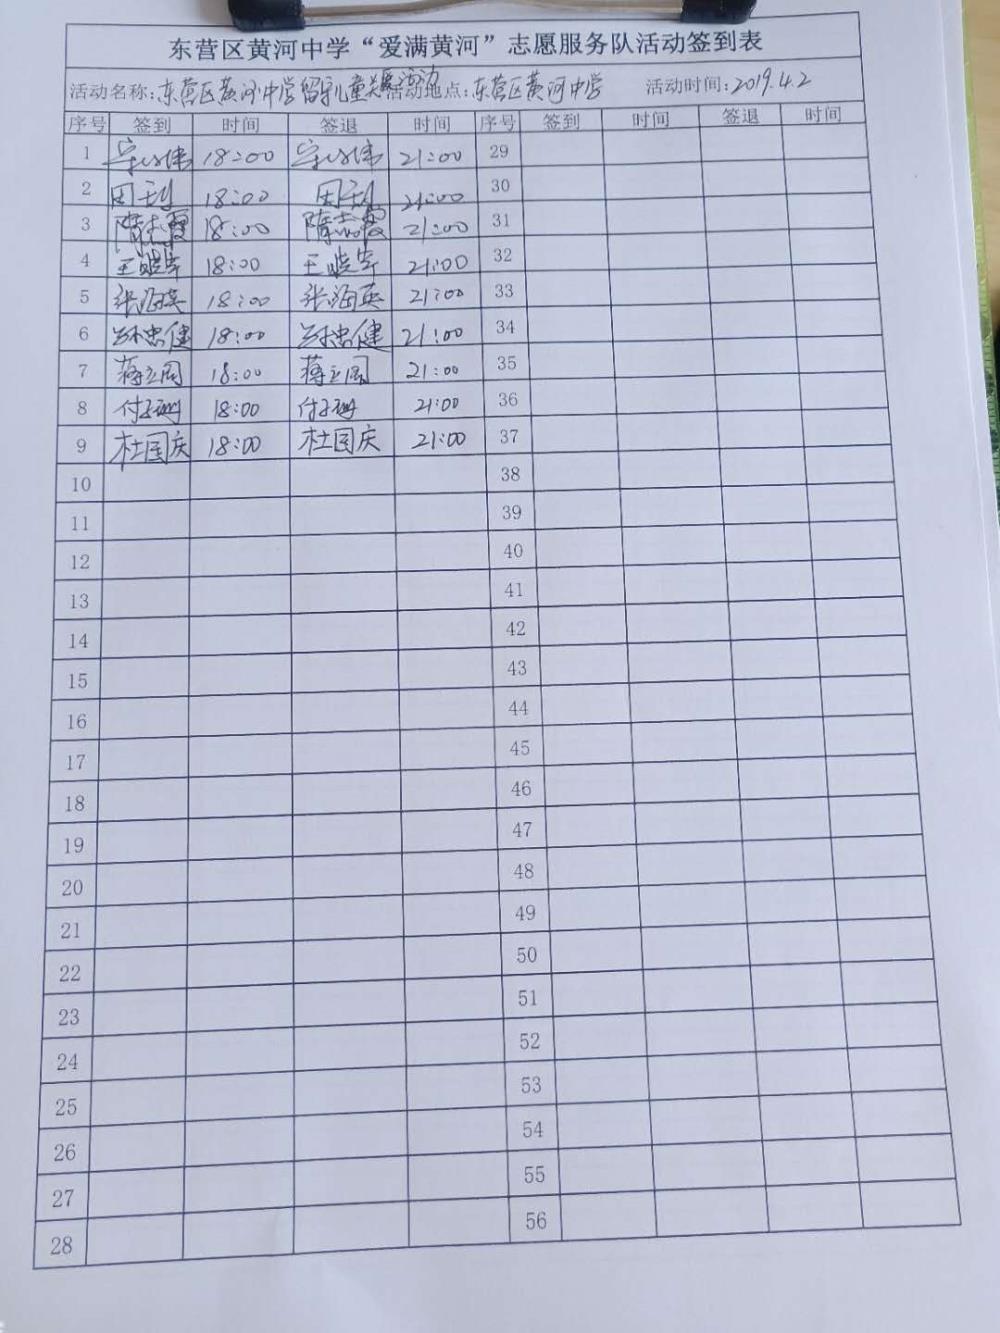 东营区黄河中学“爱满黄河”志愿服务队活动签到表
活动名称:东营区黄河中学留守儿童关爱活动 活动地点:东营区黄河中学 活动时间:2019.4.2
序号 签到 时间 签退 时间 序号 签到 时间 签退 时间
1 18:00 21:00 29
2 18:00 21:00 30
3 隋志霞 18:00 隋志霞 21:00 31
4 王晓华 18:00 王晓华 21:00 32
5 张海英 18:00 张海英 21:00 33
6 孙忠健 18:00 孙忠健 21:00 34
7 蒋立国 18:00 蒋立国 21:00 35
8 付玉珊 18:00 付玉珊 21:00 36
9 杜国庆 18:00 杜国庆 21:00 37
10 38
11 39
12 40
13 41
14 42
15 43
16 44
17 45
18 46
19 47
20 48
21 49
22 50
23 51
24 52
25 53
26 54
27 55
28 56